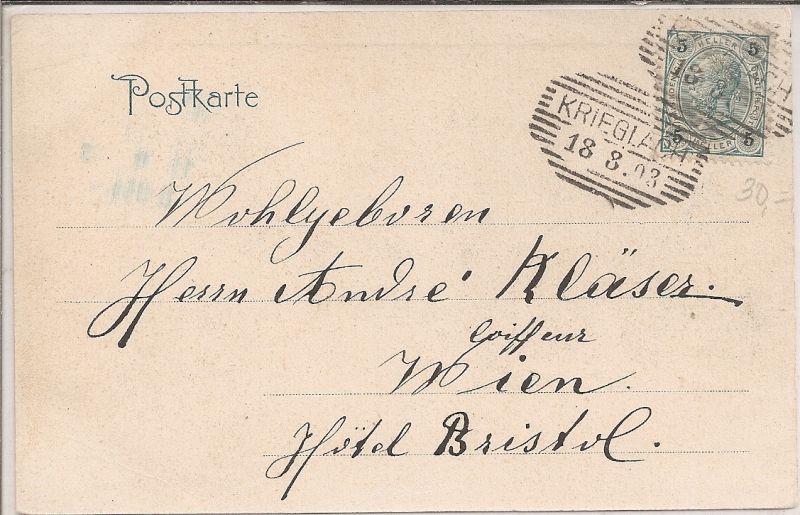 Postkarte
5 HELLER 5
5 HELLER 5
KRIEGLACH
18 8.03
30,=
Wohlgeboren
Herrn André Kläser.
Coiffeur
Wien.
Hôtel Bristol.